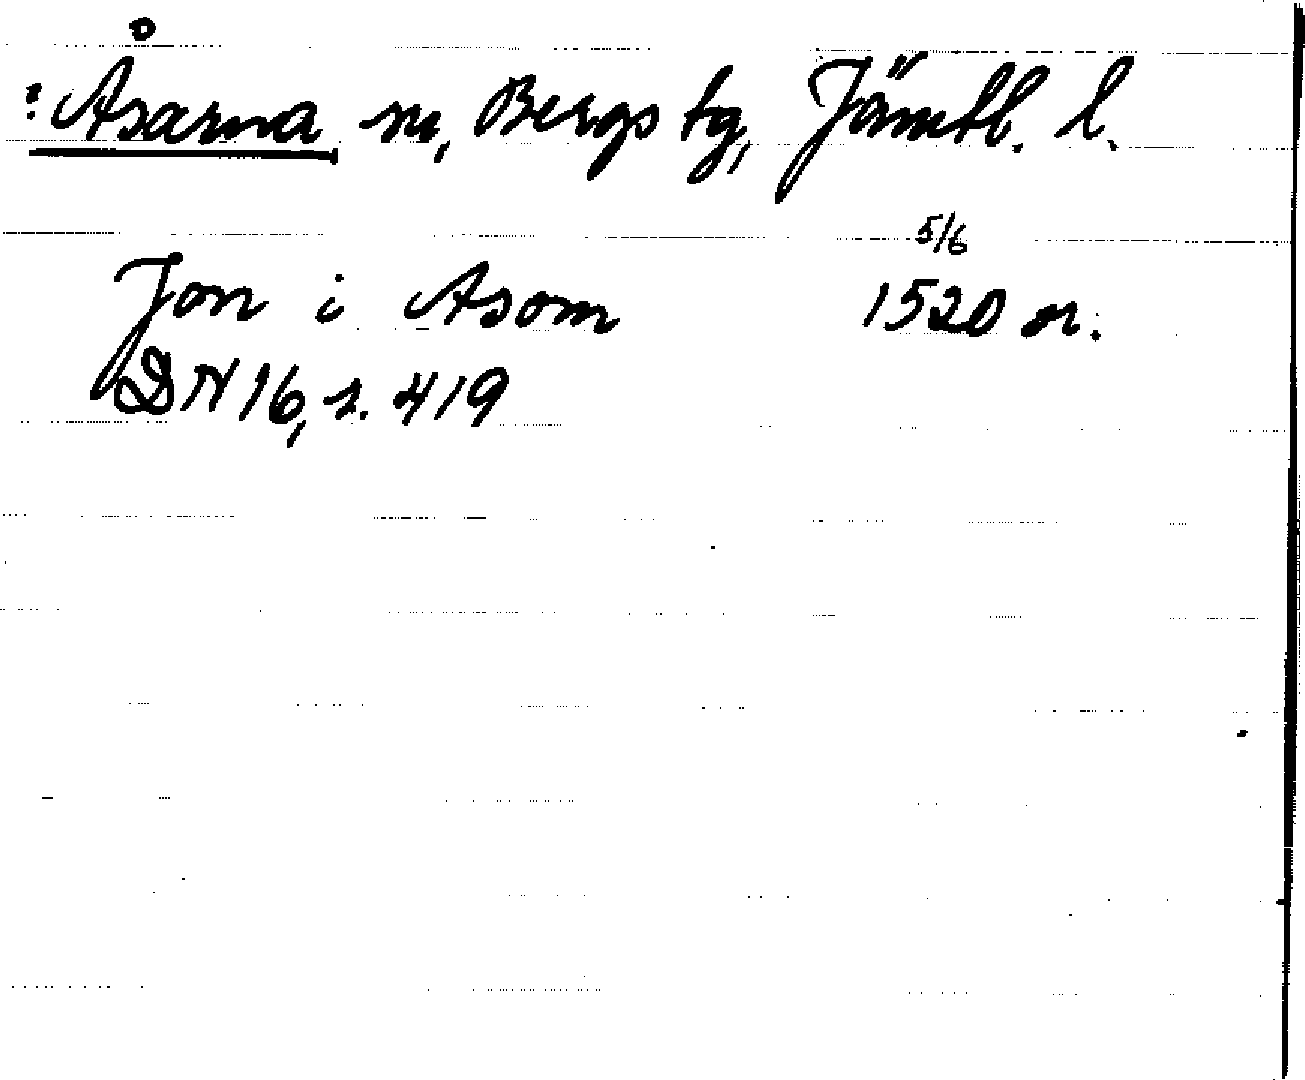 : Åsarna sn, Bergs tg, Jämtl. l.
5/6
Jon i Asom 1520 or.
DN 16, s. 419